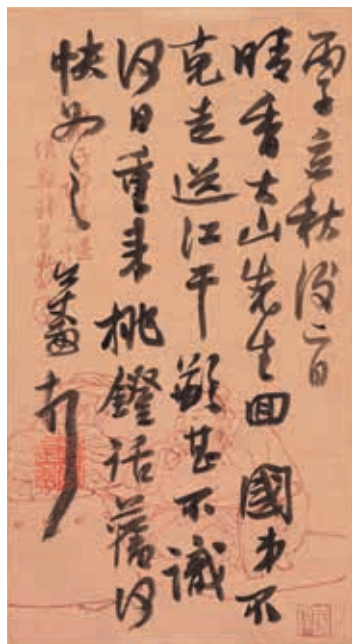 丙子立秋後二日
晴香大山先生回國弟不
克走送江干歉甚不識
何日重来挑鐙話舊何
快如之